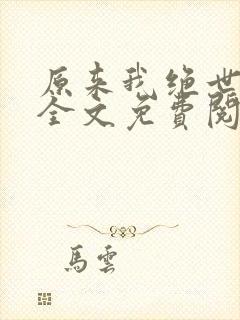 原来我绝世
全文免費閱
馬雲